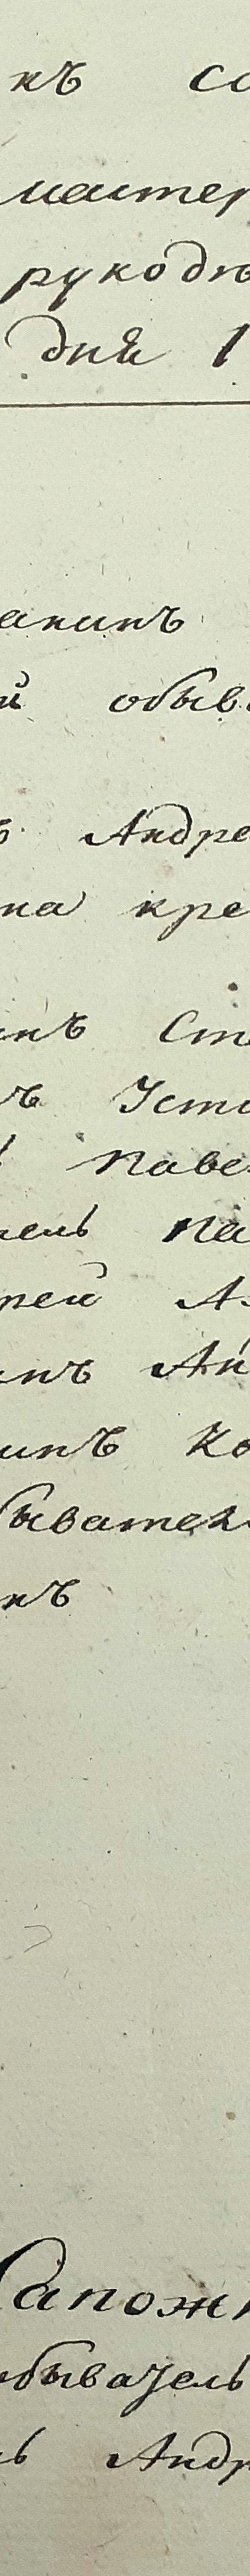 къ со
мастер
рукодѣ
дня 1
анинъ
й обыв
ъ Андре
на кре
инъ Сте
ъ Усти
ь Паве
тель Па
рей А
инъ Ан
инъ Ко
бывател
къ
Сапожн
обыватель
ь Андр